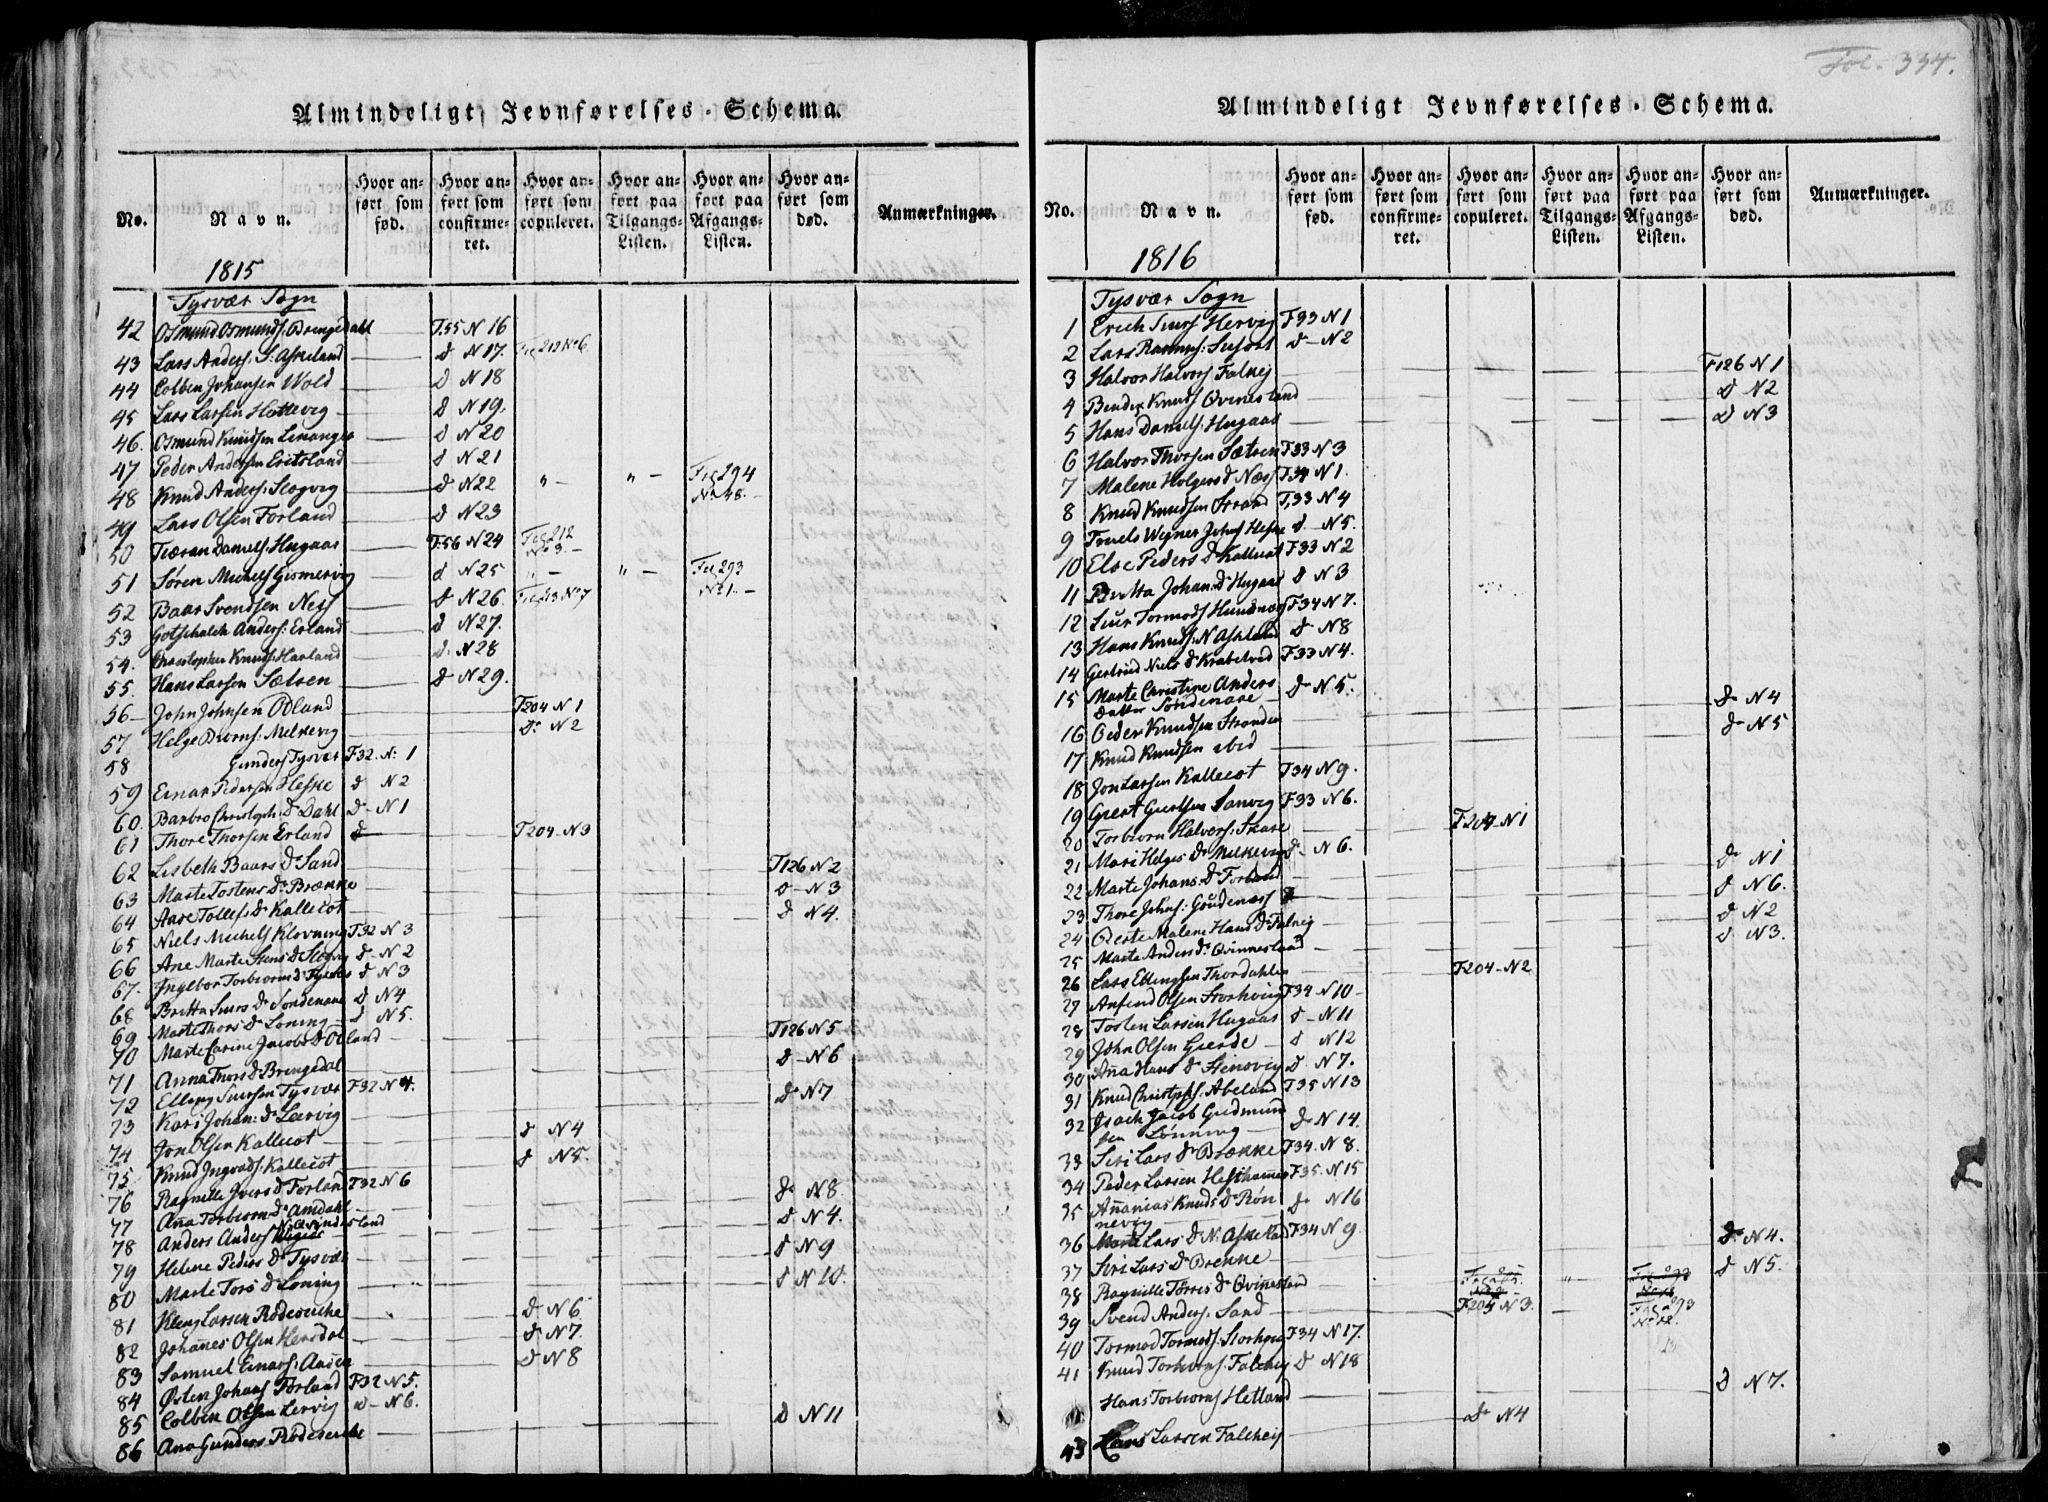 Almindeligt Jevnførelses-Schema.
No. Navn. Hvor anført som fød. Hvor anført som confirmeret. Hvor anført som copuleret. Hvor anført paa Tilgangs-Listen. Hvor anført paa Afgangs-Listen. Hvor anført som død. Anmærkninger.
1815
Tysvær Sogn
42 Osmund Osmunds: Brengedahl F.55 N 16
43 Lars Anders: S: Askeland d N 17.
44 Colben Johansen Wold d N 18
45 Lars Larsen Hettevig d N 19.
46. Osmund Knudsen d N 20
47 Peder Andersen Eritsland d N 21
48 Knud Anders: Slogvig d N 22 " - " - Fol 294 No 48. -
49 Lars Olsen Forland d N 23
50 Daniels: Hugaas F.56 N 24 Fol 212 No 3. -
51 Søren Michels Gismervig d N 25 " - " - Fol 293 No 1. -
52 Baar Svendsen Ness d N 26
53 Gotschalch Anders: Erland d N 27.
54. Christopher Knuds: Harland d. N 28
55. Hans Larsen Sætren d N 29.
56 - John Johnsen Odland F204 N 1
57 Helge Biørns: Melkevig Do N 2
58 Gunders Tysvær F32. N: 1
59 Einar Pedersen Heske d N 2
60. Barbro Christoph: Dr Dahl d - N 1
61 Thore Thorsen Erland F204 - N 3
62 Lisbeth Baars Dr Sand F126 N 2
63 Marte Tostens Dr Brække d - N 3
64 Aase Tollefs Dr Kallecot d N 4.
65 Niels Michels Klovning F32 N 3
66 Ane Marte Dr Slogvig d - N 2
67. Ingebor Torbiorns d N 3
68 Britta Siurs Dr Søndenaae d N 4
69 Marte Thors Dr Loning - d N 5.
70 Marte Carine Jacobs Dr Odland F126 N 5
71 Anna Thors Dr Brengedal d - N 6
72 Elling Siursen Tysvær F32 N 4. Do N 7
73 Kari Johan: Dr Leervig
74 Jon Olsen Kallecot d N 4
75 Knud Ingvads: Kallecot d N 5.
76 Ragnille Ivers d Forland F32 N 6 Do N 8
77 Ana Torbiorns Dr Amdahl d N 4.
78 Anders Anders
79 Helene Peders Dr Tysvær d N 9
80 Marte Tors Dr Loning d N 10.
81 Larsen d N 6
82 Johannes Olsen Hersdal d N 7.
83 Samuel Einars: d N 8
84 Østen Johans Forland F32 N 5.
85 Colben Olsen Lervig d - N 6.
86 Ana Gunders d N 11
Fol. 334.
Almindeligt Jevnførelses-Schema.
No. Navn. Hvor anført som fød. Hvor anført som confirmeret. Hvor anført som copuleret. Hvor anført paa Tilgangs-Listen. Hvor anført paa Afgangs-Listen. Hvor anført som død. Anmærkninger.
1816
Tysvær Sogn
1 Erich Siurs Hervig F33 N 1
2 Lars Rasmus: d - N 2
3 Halvor Halvors Falkej F126 N 1
4 Bendix Knuds Qvinesland d N 2
5 Hans Daniels: Hugaas d N 3
6 Halvor Thorsen Sætren F33 N 3
7 Malene Holgers d Næs F34 N 1.
8 Knud Knudsen Straand F.33 N 4
9 Truels Wegner Johns Heske d - N 5.
10 Else Peders Dr Kallecot F33 N 2
11 Britta Johan: Dr Hugaas d N 3
12 Siur Tormods Hundnæs F34 N 7.
13 Hans Knuds: N Askeland d - N 8
14 Gertrud Niels Dr Krabetved F33 N 4.
15 Marte Christine Anders Datter Søndenaae Do N 5.
16 Peder Knudsen Stranden Do N 4
17 Knud Knudsen ibid Do N 5
18 Jon Larsen Kallecot F34 N 9.
19 Giert Giertsen Sanvig F33 N 6.
20 Torbiorn Halvors: Skare F204 - N 1
21 Mari Helges Dr Melkevig d - N 6.
22 Marte Johans: Dr Forland Do N 1
23 Thore Johns: d N 6.
24 Malene Hans Dr Falkeig d N 2
25 Marte Anders Dr Qvinnesland d N 3.
26 Lars Ellingsen Thordahlen F204 - N 2
27 Anfind Olsen Storhoug F34 N 10 -
28 Tosten Larsen Hugaas d - N 11
29 John Olsen Gierde - d N 12
30 Ana Hans Dr Stensvig d N 7.
31 Knud Christophs: Abeland F35 N 13
32 Isach Jacob Gudmundsen Lønning Do N 14.
33 Siri Lars Dr Brække F34. N 8.
34 Peder Larsen Hesthammer F35. N 15
35 Ananias Knuds Dr Rønnevig Do N 16
36 Marte Lars Dr N: Askeland F34 N 9.
37 Siri Lars Dr Brekke Do N 4.
38 Ragnille Torres Dr Qvinesland d N 5.
39 Svend Anders: Sand F204 N 3. - Fol 293
40 Tormod Tormods: Storhoug F34 N 17.
41 Knud Torbiorns: Falchej d N 18
Hans Torbiorns Hetland d N 7.
43 Hans Larsen Falchej Do N 4